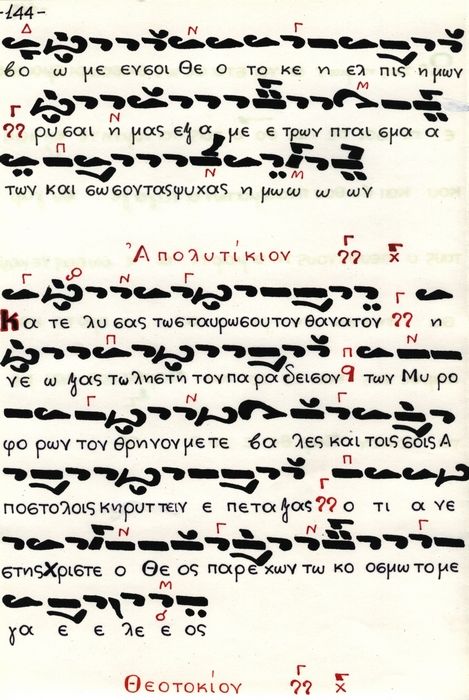 -144-
βο ω με εν σοι Θε ο το κε η ελ πις η μων
ρυ σαι η μας εξ α με ε τρων πται σμα α
των και σω σον τας ψυχας η μω ω ω ων
Ἀπολυτίκιον
Κα τε λυ σας τω σταυρω σου τον θανατον η
νε ω ξας τω ληστη τον πα ρα δεισον των Μυ ρο
φο ρων τον θρηνον με τε βα λες και τοις σοις Α
ποστολοις κηρυττειν ε πετα ξας ο τι α νε
στης Χριστε ο Θε ος παρε χων τω κο σμω το με
γα ε ε λε ε ος
Θεοτοκίον